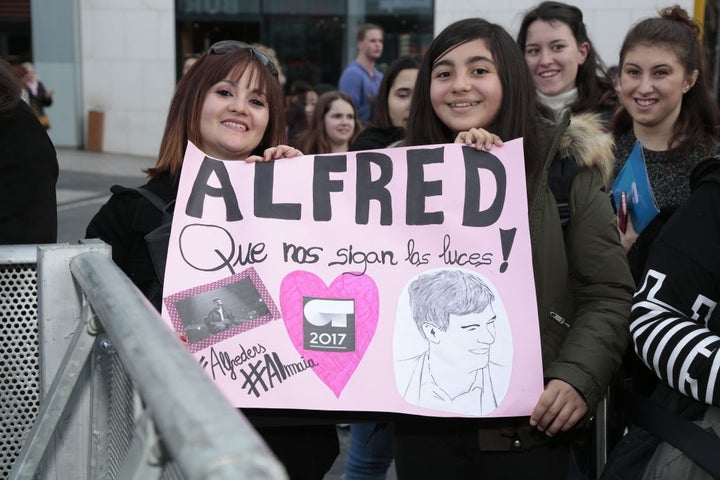 ALFRED
Que nos sigan las luces!
OT
2017
#Alfreders
#Almaia